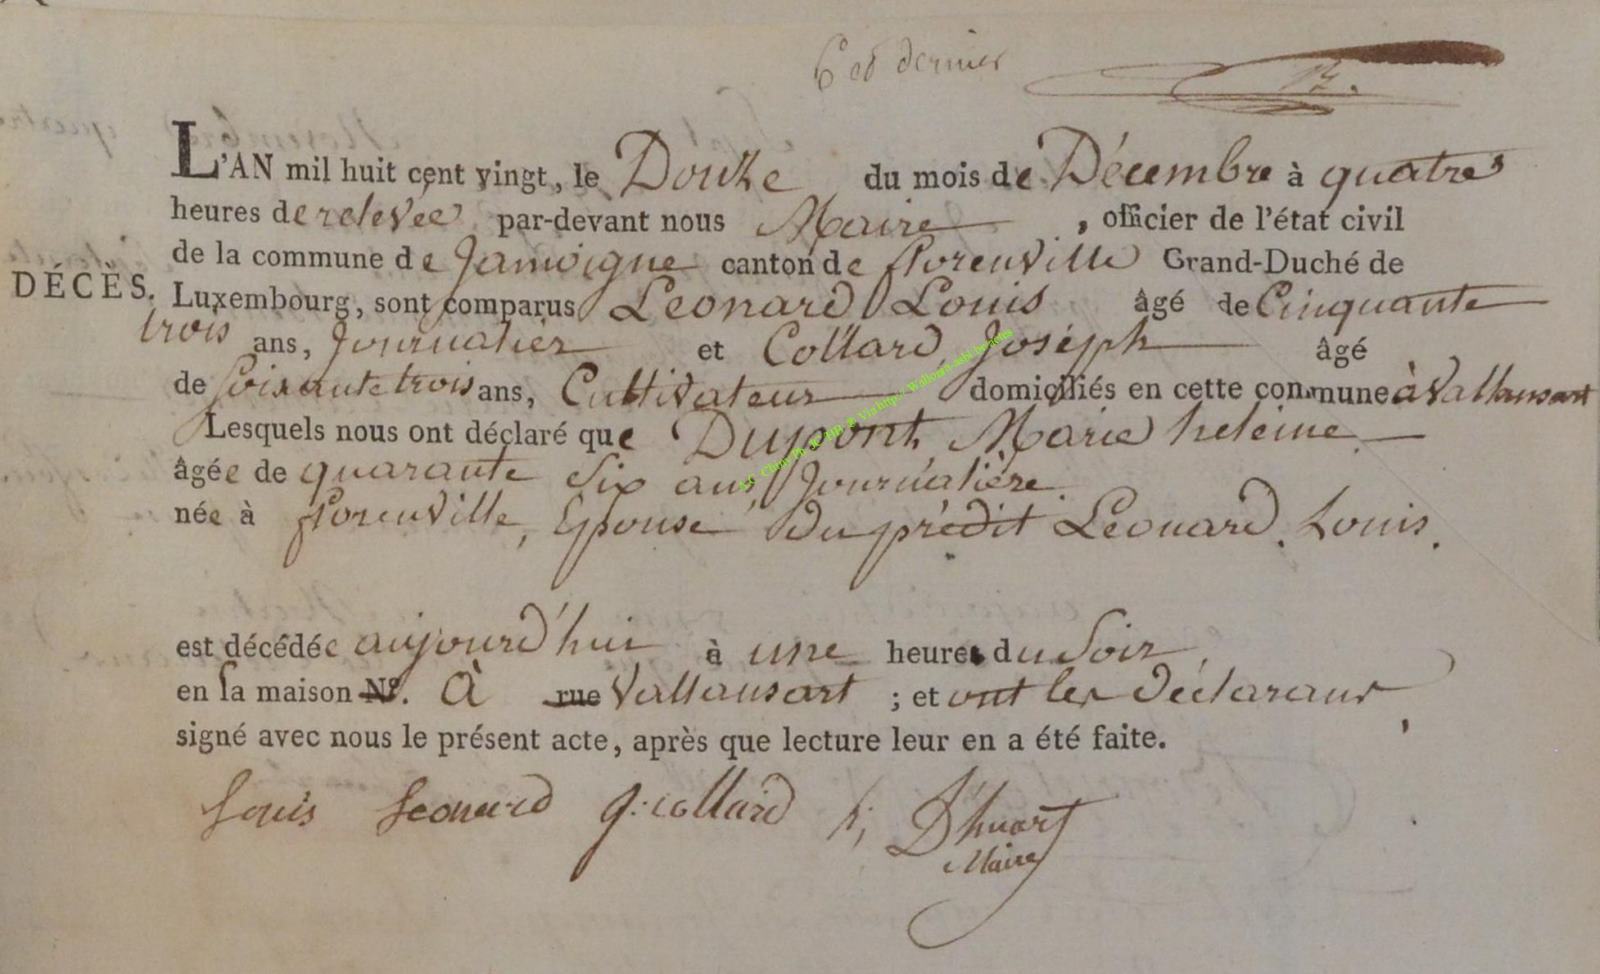 6 et dernier
L'AN mil huit cent vingt, le Douze du mois de Décembre à quatre
heures de relevée par-devant nous Maire, officier de l'état civil
de la commune de Jamoigne canton de florenville Grand-Duché de
DÉCÈS. Luxembourg, sont comparus Leonard Louis âgé de Cinquante
trois ans, Journalier et Collard, Joséph âgé
de Soixante trois ans, Cultivateur domiciliés en cette commune à Vallansart
Lesquels nous ont déclaré que Dupont, Marie heleine
âgée de quarante Six ans, Journalière
née à florenville, Epouse du prédit Leonard, Louis.
est décédée aujourd'hui à une heure du Soir,
en sa maison N°. À rue Vallansart ; et ont les déclarans,
signé avec nous le présent acte, après que lecture leur en a été faite.
Louis Leonard J: collard h; D'huart
Maire